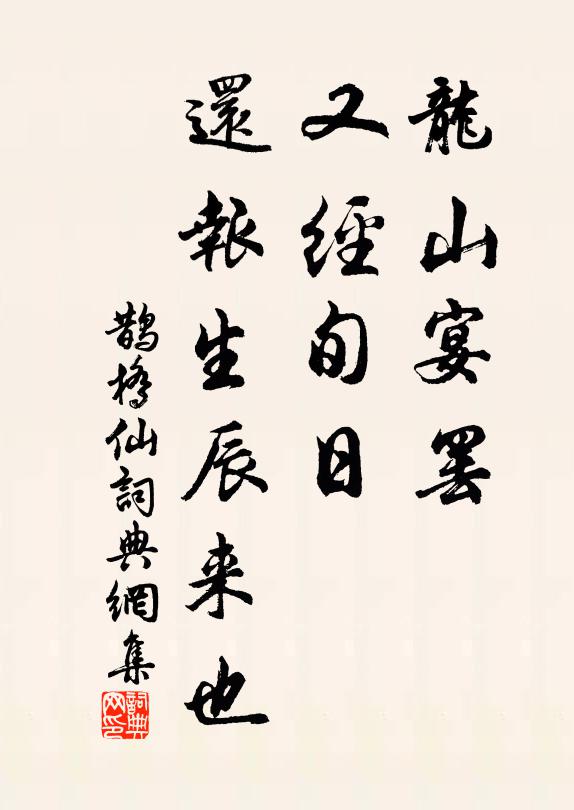 龍山宴罷
又經旬日
還報生辰来也
鵲橋仙詞典網集
詞典网印